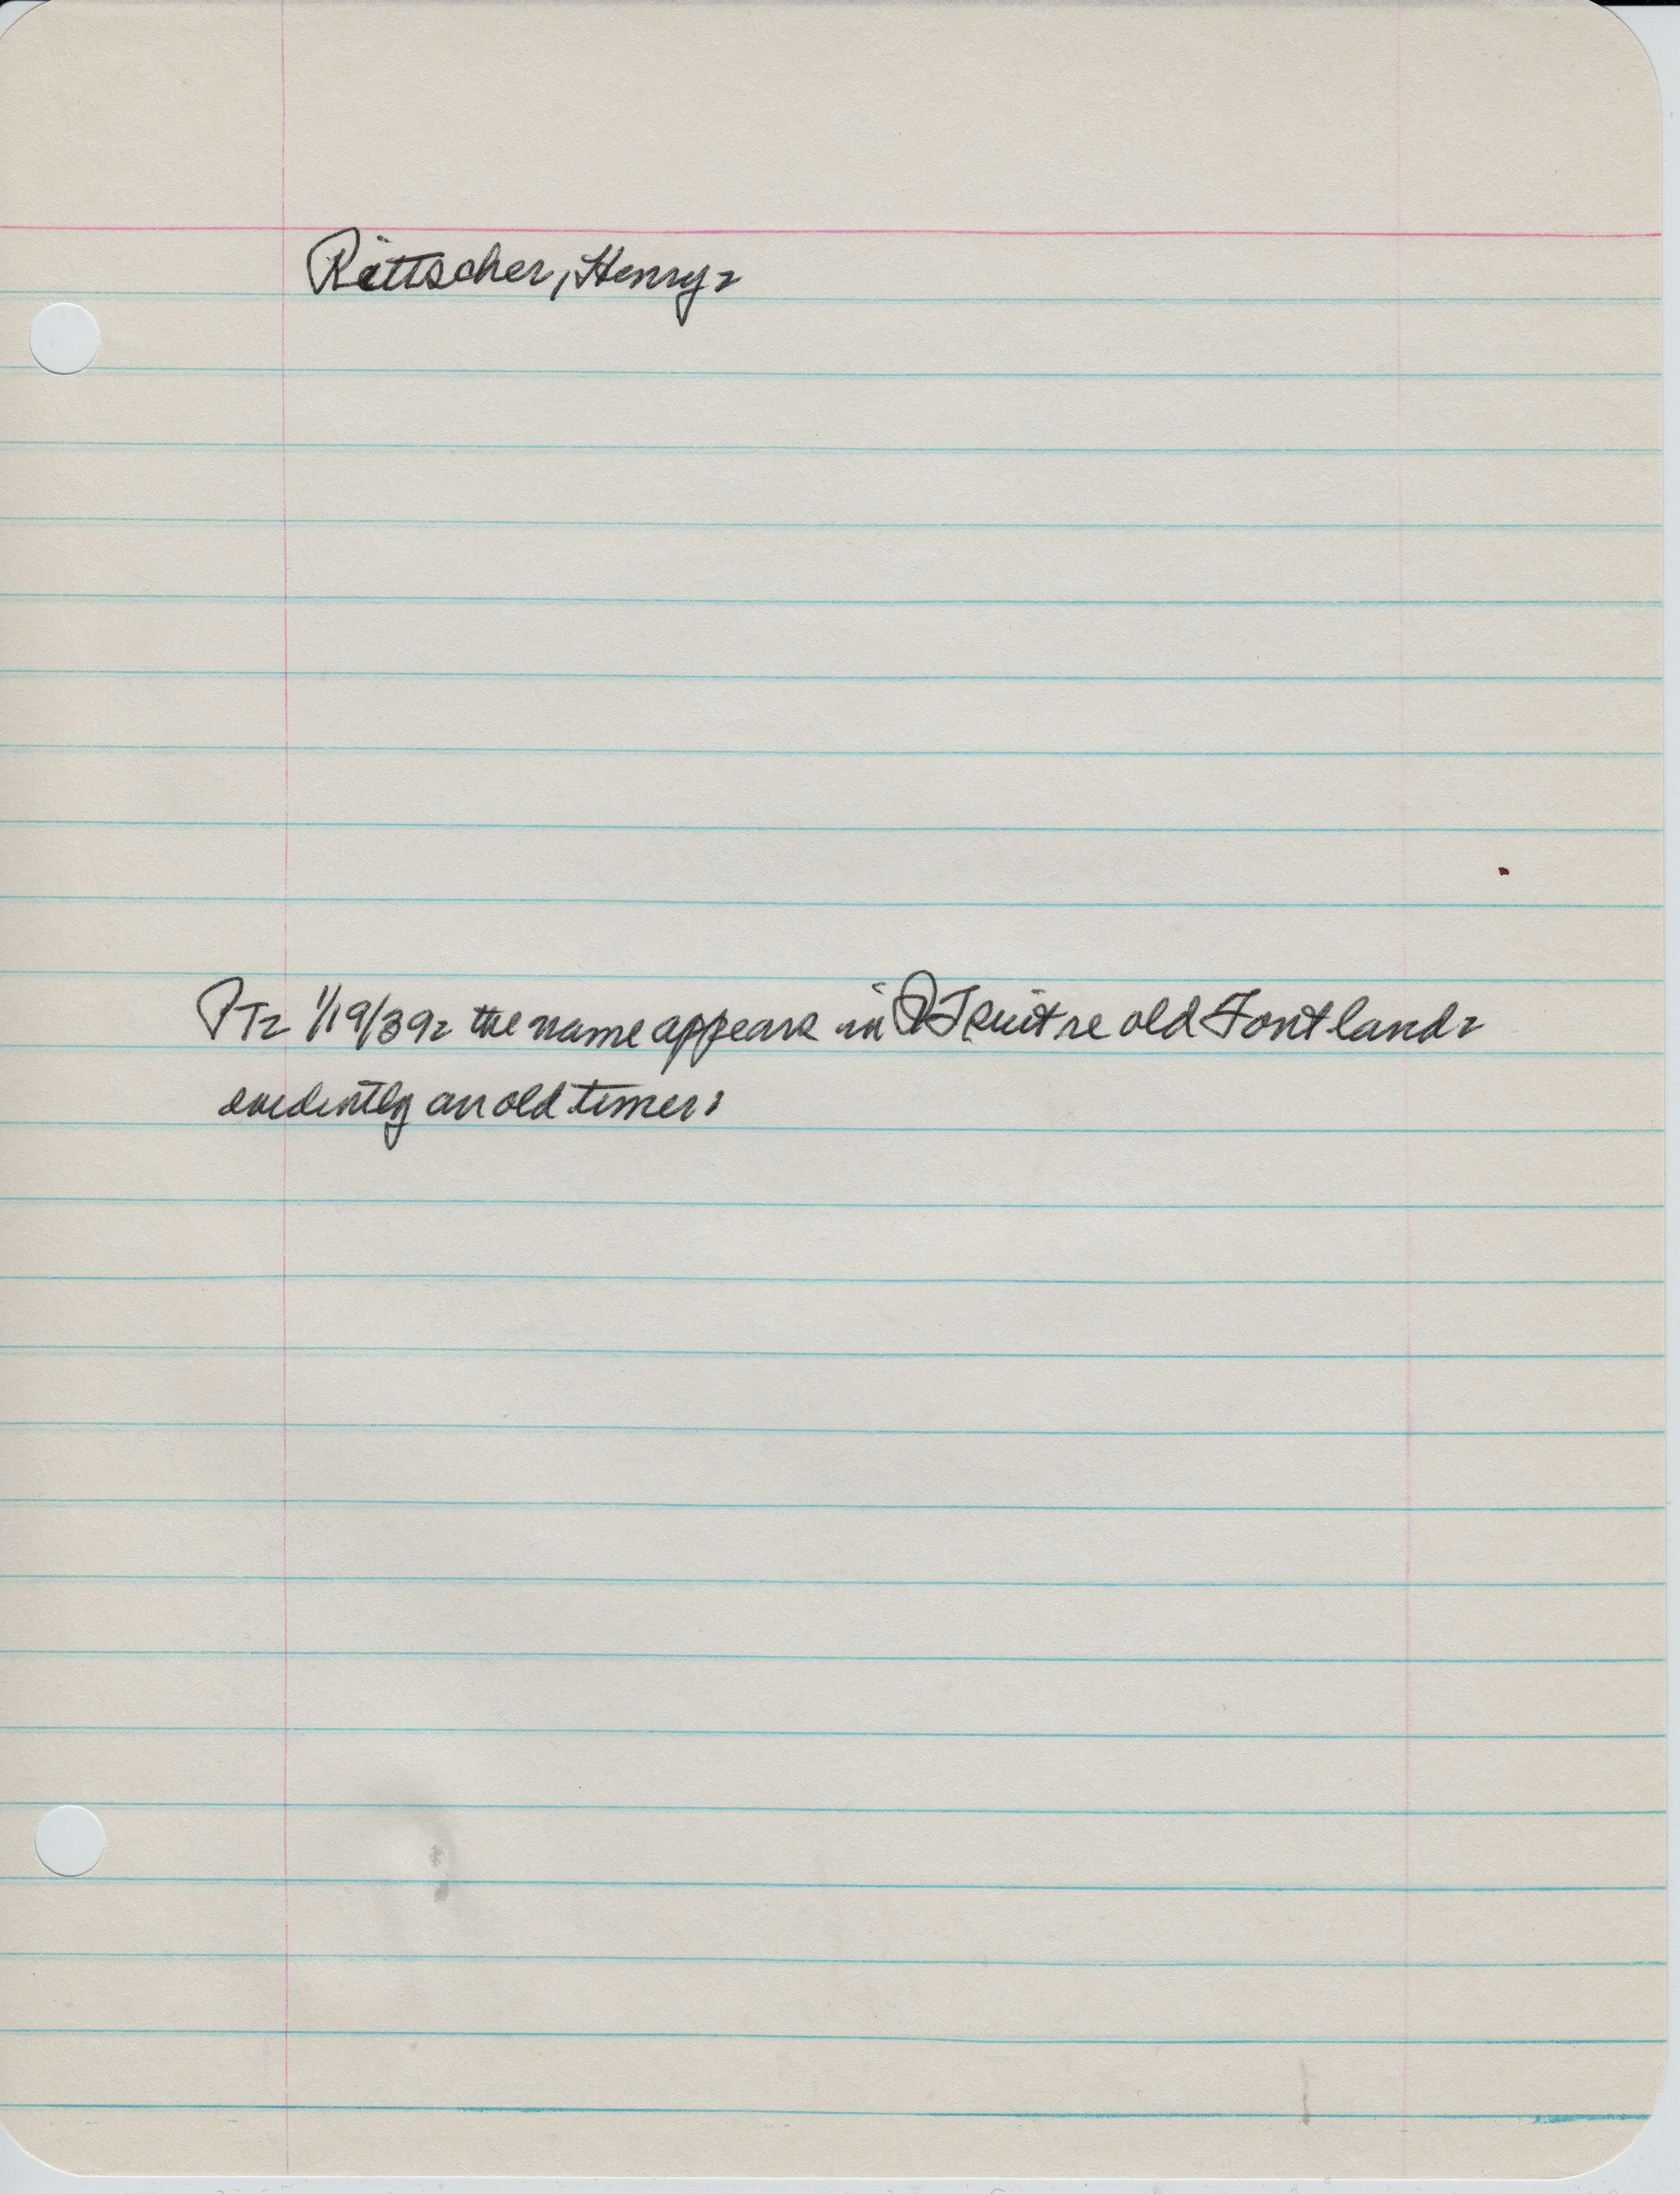 Rittscher, Henry-
PT- 1/19/39- the name appears in PT suit re old Font land-
evidently an old timer: